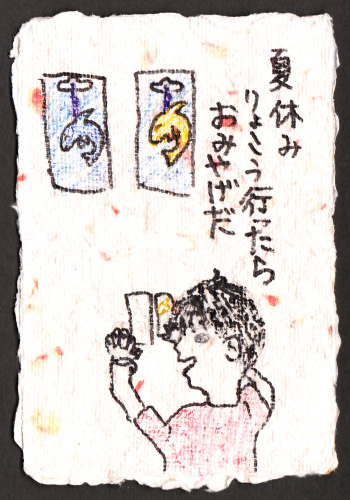 夏休み
りょこう行ったら
おみやげだ